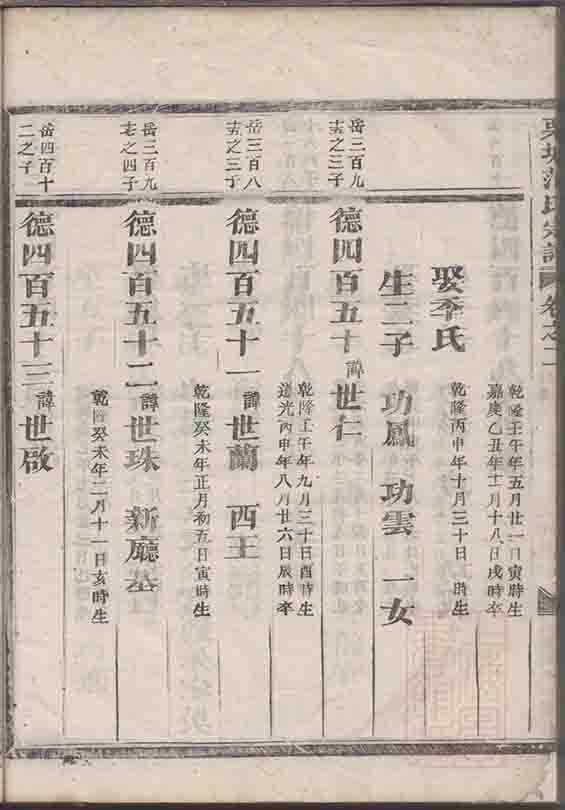 氏宗譜 卷之二
乾隆壬午年五月廿一日寅時生
嘉慶乙丑年十一月十八日戌時卒
娶李氏
乾隆丙申年十月三十日 時生
生二子 功鳳 功雲 一女
岳三百九
十五之三子
德四百五十 諱世仁
乾隆壬午年九月三十日酉時生
道光丙申年八月廿六日辰時卒
岳三百八
十五之三子
德四百五十一 諱世蘭 西王
乾隆癸未年正月初五日寅時生
岳三百九
之四子
德四百五十二 諱世珠 新廳基
乾隆癸未年二月十一日亥時生
岳四百十
二之子
德四百五十三 諱世啟